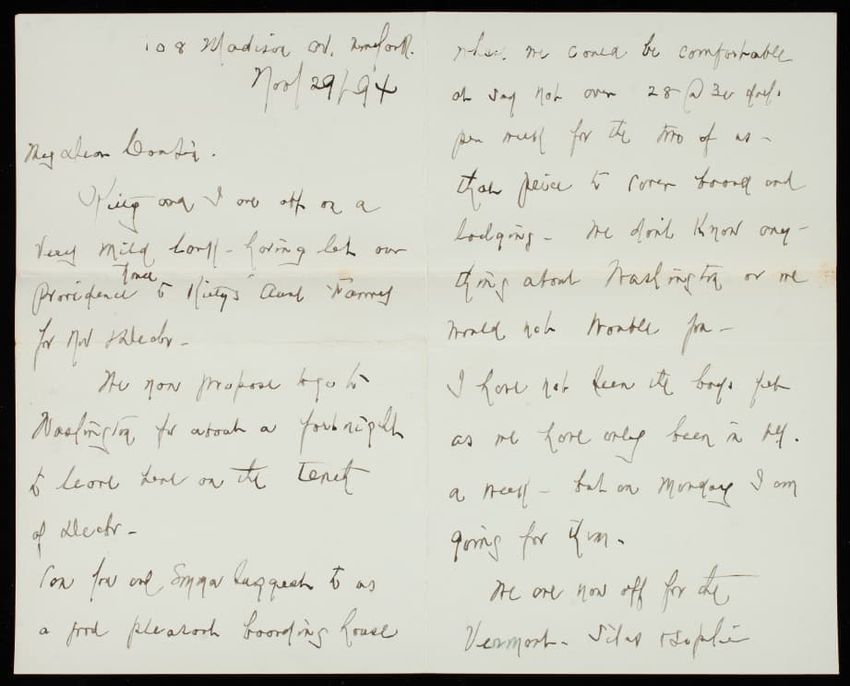 108 Madison Av. New York.
Nov 29/94
My dear Cousin.
Kitty and I are off on a
Very mild lark - having let our
Providence house to Kitty's Aunt Fanny
for Nov & Decbr -
We now propose to go to
Washington for about a fortnight
to leave here on the tenth
of Decbr -
Can you and Emma suggest to us
a good pleasant boarding house
where we could be comfortable
at say not over 28 @ 30 dols.
per week for the two of us -
that price to cover board and
lodging - We don't know any-
thing about Washington or we
would not trouble you -
I have not seen the boys yet
as we have only been in NY.
a week - but on Monday I am
going for them.
We are now off for the
Vermont - Silas & Sophie